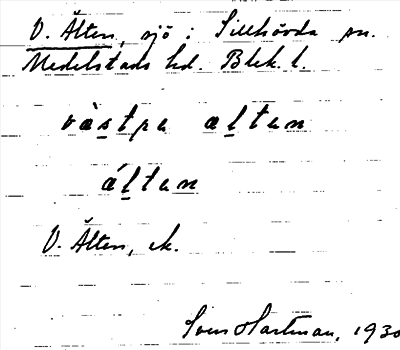 V. Älten, sjö i Sillhövda sn.
Medelstads hd. Blek. l.
vàstpa altan
áltan
V. Älten, ek.
Sven Hartman, 1930